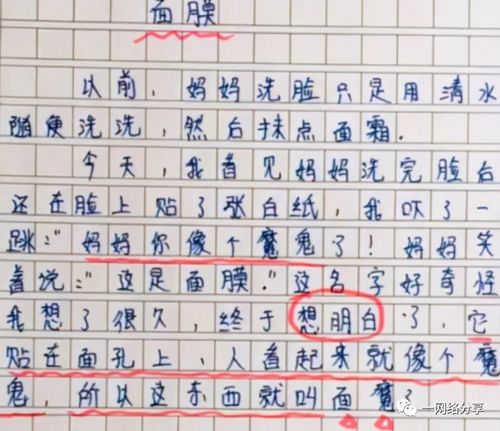 面膜
以前，妈妈洗脸只是用清水
随便洗洗，然后抹点面霜．
今天，我看见妈妈洗完脸后
还在脸上贴了张白纸，我吓了一
跳："妈妈你像个魔鬼了！妈妈笑
着说："这是面膜．"这名字好奇怪
我想了很久，终于想明白了，它
贴在面孔上，人看起来就像个魔
鬼，所以这东西就叫面魔？
一网络分享